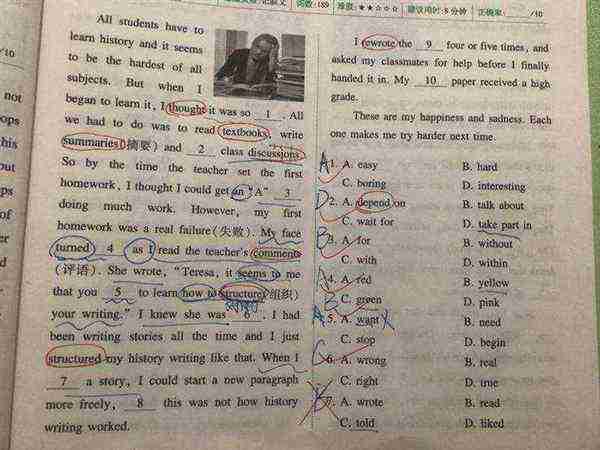 词数:189 难度:★★☆☆☆ 建议用时:8分钟 正确率: /10
All students have to
learn history and it seems
to be the hardest of all
subjects. But when I
began to learn it, I thought it was so 1 . All
we had to do was to read textbooks, write
summaries(摘要) and 2 class discussions.
So by the time the teacher set the first
homework, I thought I could get an "A" 3
doing much work. However, my first
homework was a real failure(失败). My face
turned 4 as I read the teacher's comments
(评语). She wrote, "Teresa, it seems to me
that you 5 to learn how to structure(组织)
your writing." I knew she was 6 . I had
been writing stories all the time and I just
structured my history writing like that. When I
7 a story, I could start a new paragraph
more freely, 8 this was not how history
writing worked.
I rewrote the 9 four or five times, and
asked my classmates for help before I finally
handed it in. My 10 paper received a high
grade.
These are my happiness and sadness. Each
one makes me try harder next time.
A 1. A. easy B. hard
C. boring D. interesting
D 2. A. depend on B. talk about
C. wait for D. take part in
B 3. A. for B. without
C. with D. within
A 4. A. red B. yellow
B C. green D. pink
A 5. A. want B. need
C. stop D. begin
C 6. A. wrong B. real
C. right D. true
B 7. A. wrote B. read
C. told D. liked
/10
not
ops
his
out
ps
of
er
d